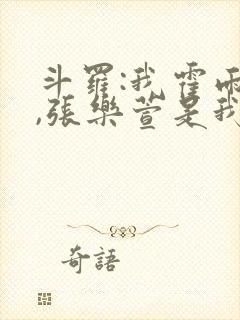 斗羅:我霍雨
,張樂萱是我
奇語